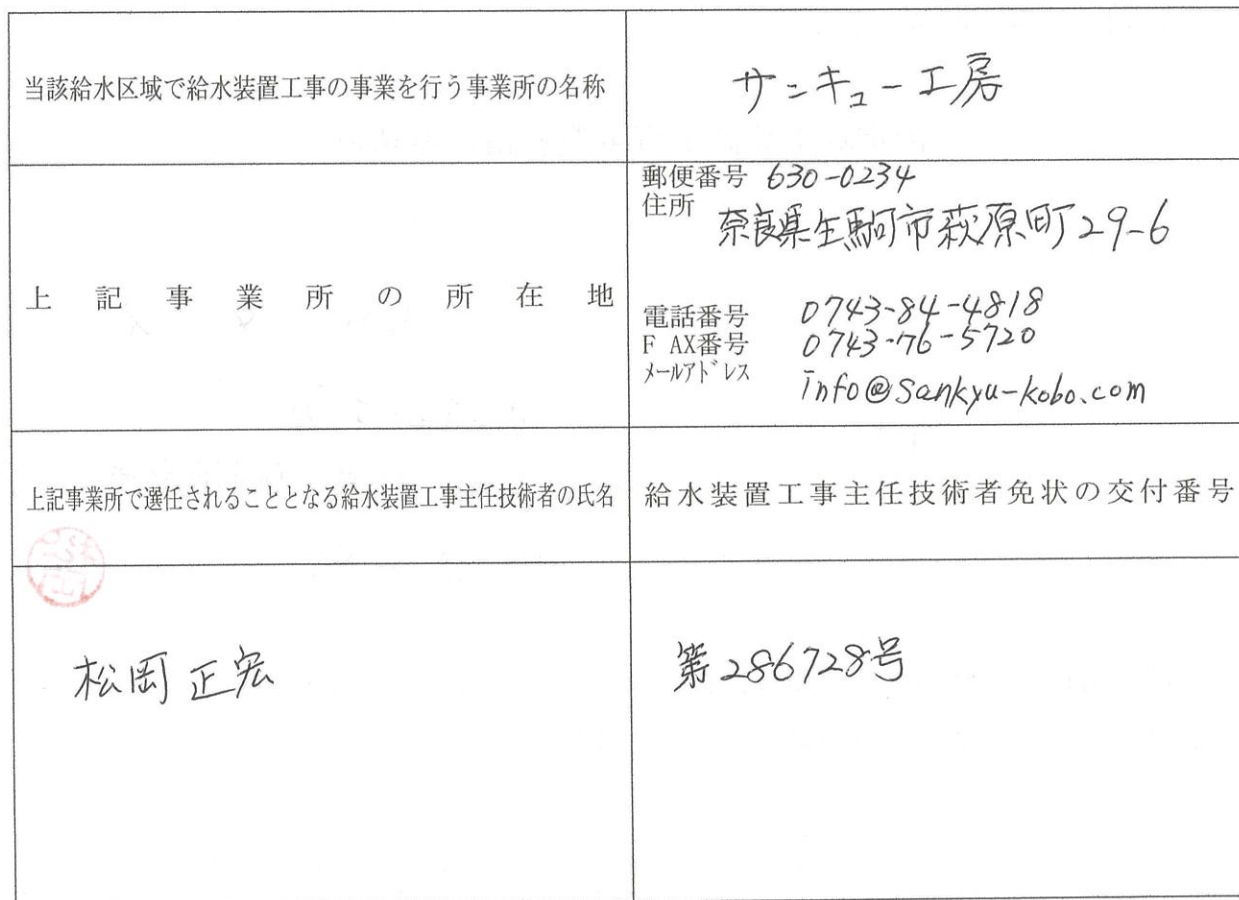 当該給水区域で給水装置工事の事業を行う事業所の名称
サンキュー工房
上記事業所の所在地
郵便番号 630-0234
住所
奈良県生駒市萩原町29-6
電話番号 0743-84-4818
F AX番号 0743-76-5720
メールアドレス info@sankyu-kobo.com
上記事業所で選任されることとなる給水装置工事主任技術者の氏名
給水装置工事主任技術者免状の交付番号
松岡 正宏
第286728号